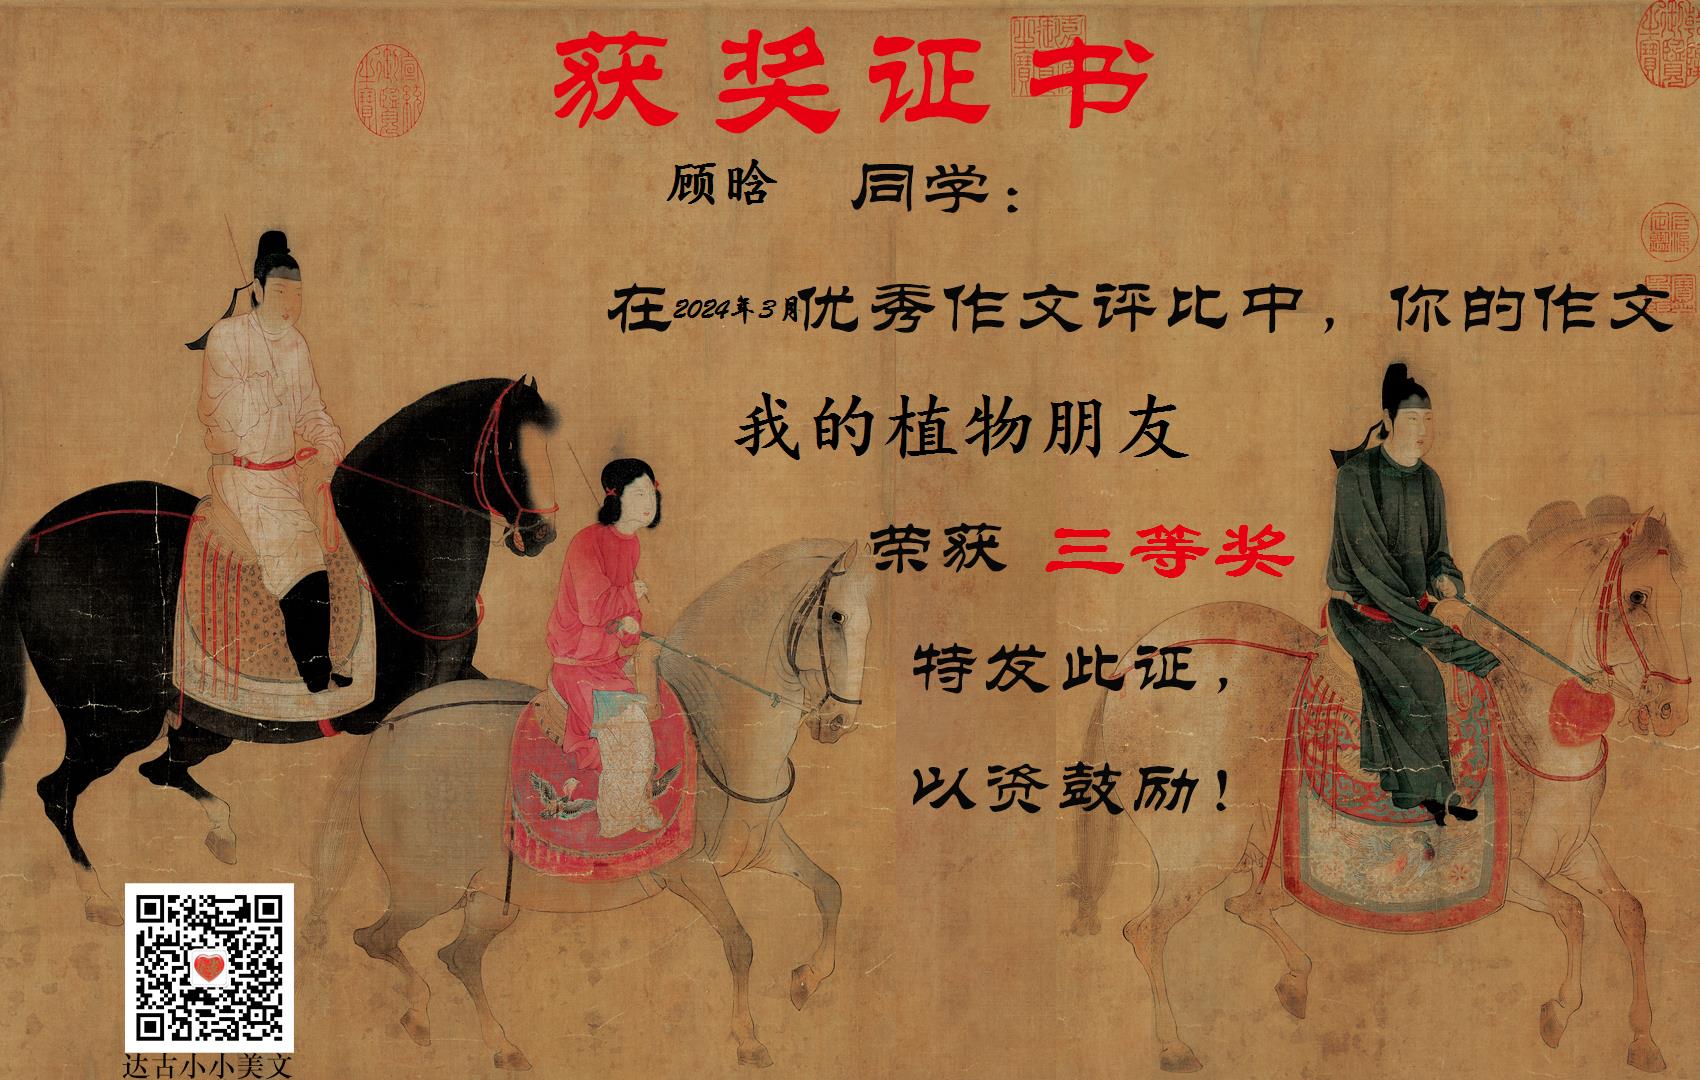 获奖证书
顾晗 同学：
在2024年3月优秀作文评比中，你的作文
我的植物朋友
荣获 三等奖
特发此证，
以资鼓励！
达古小小美文